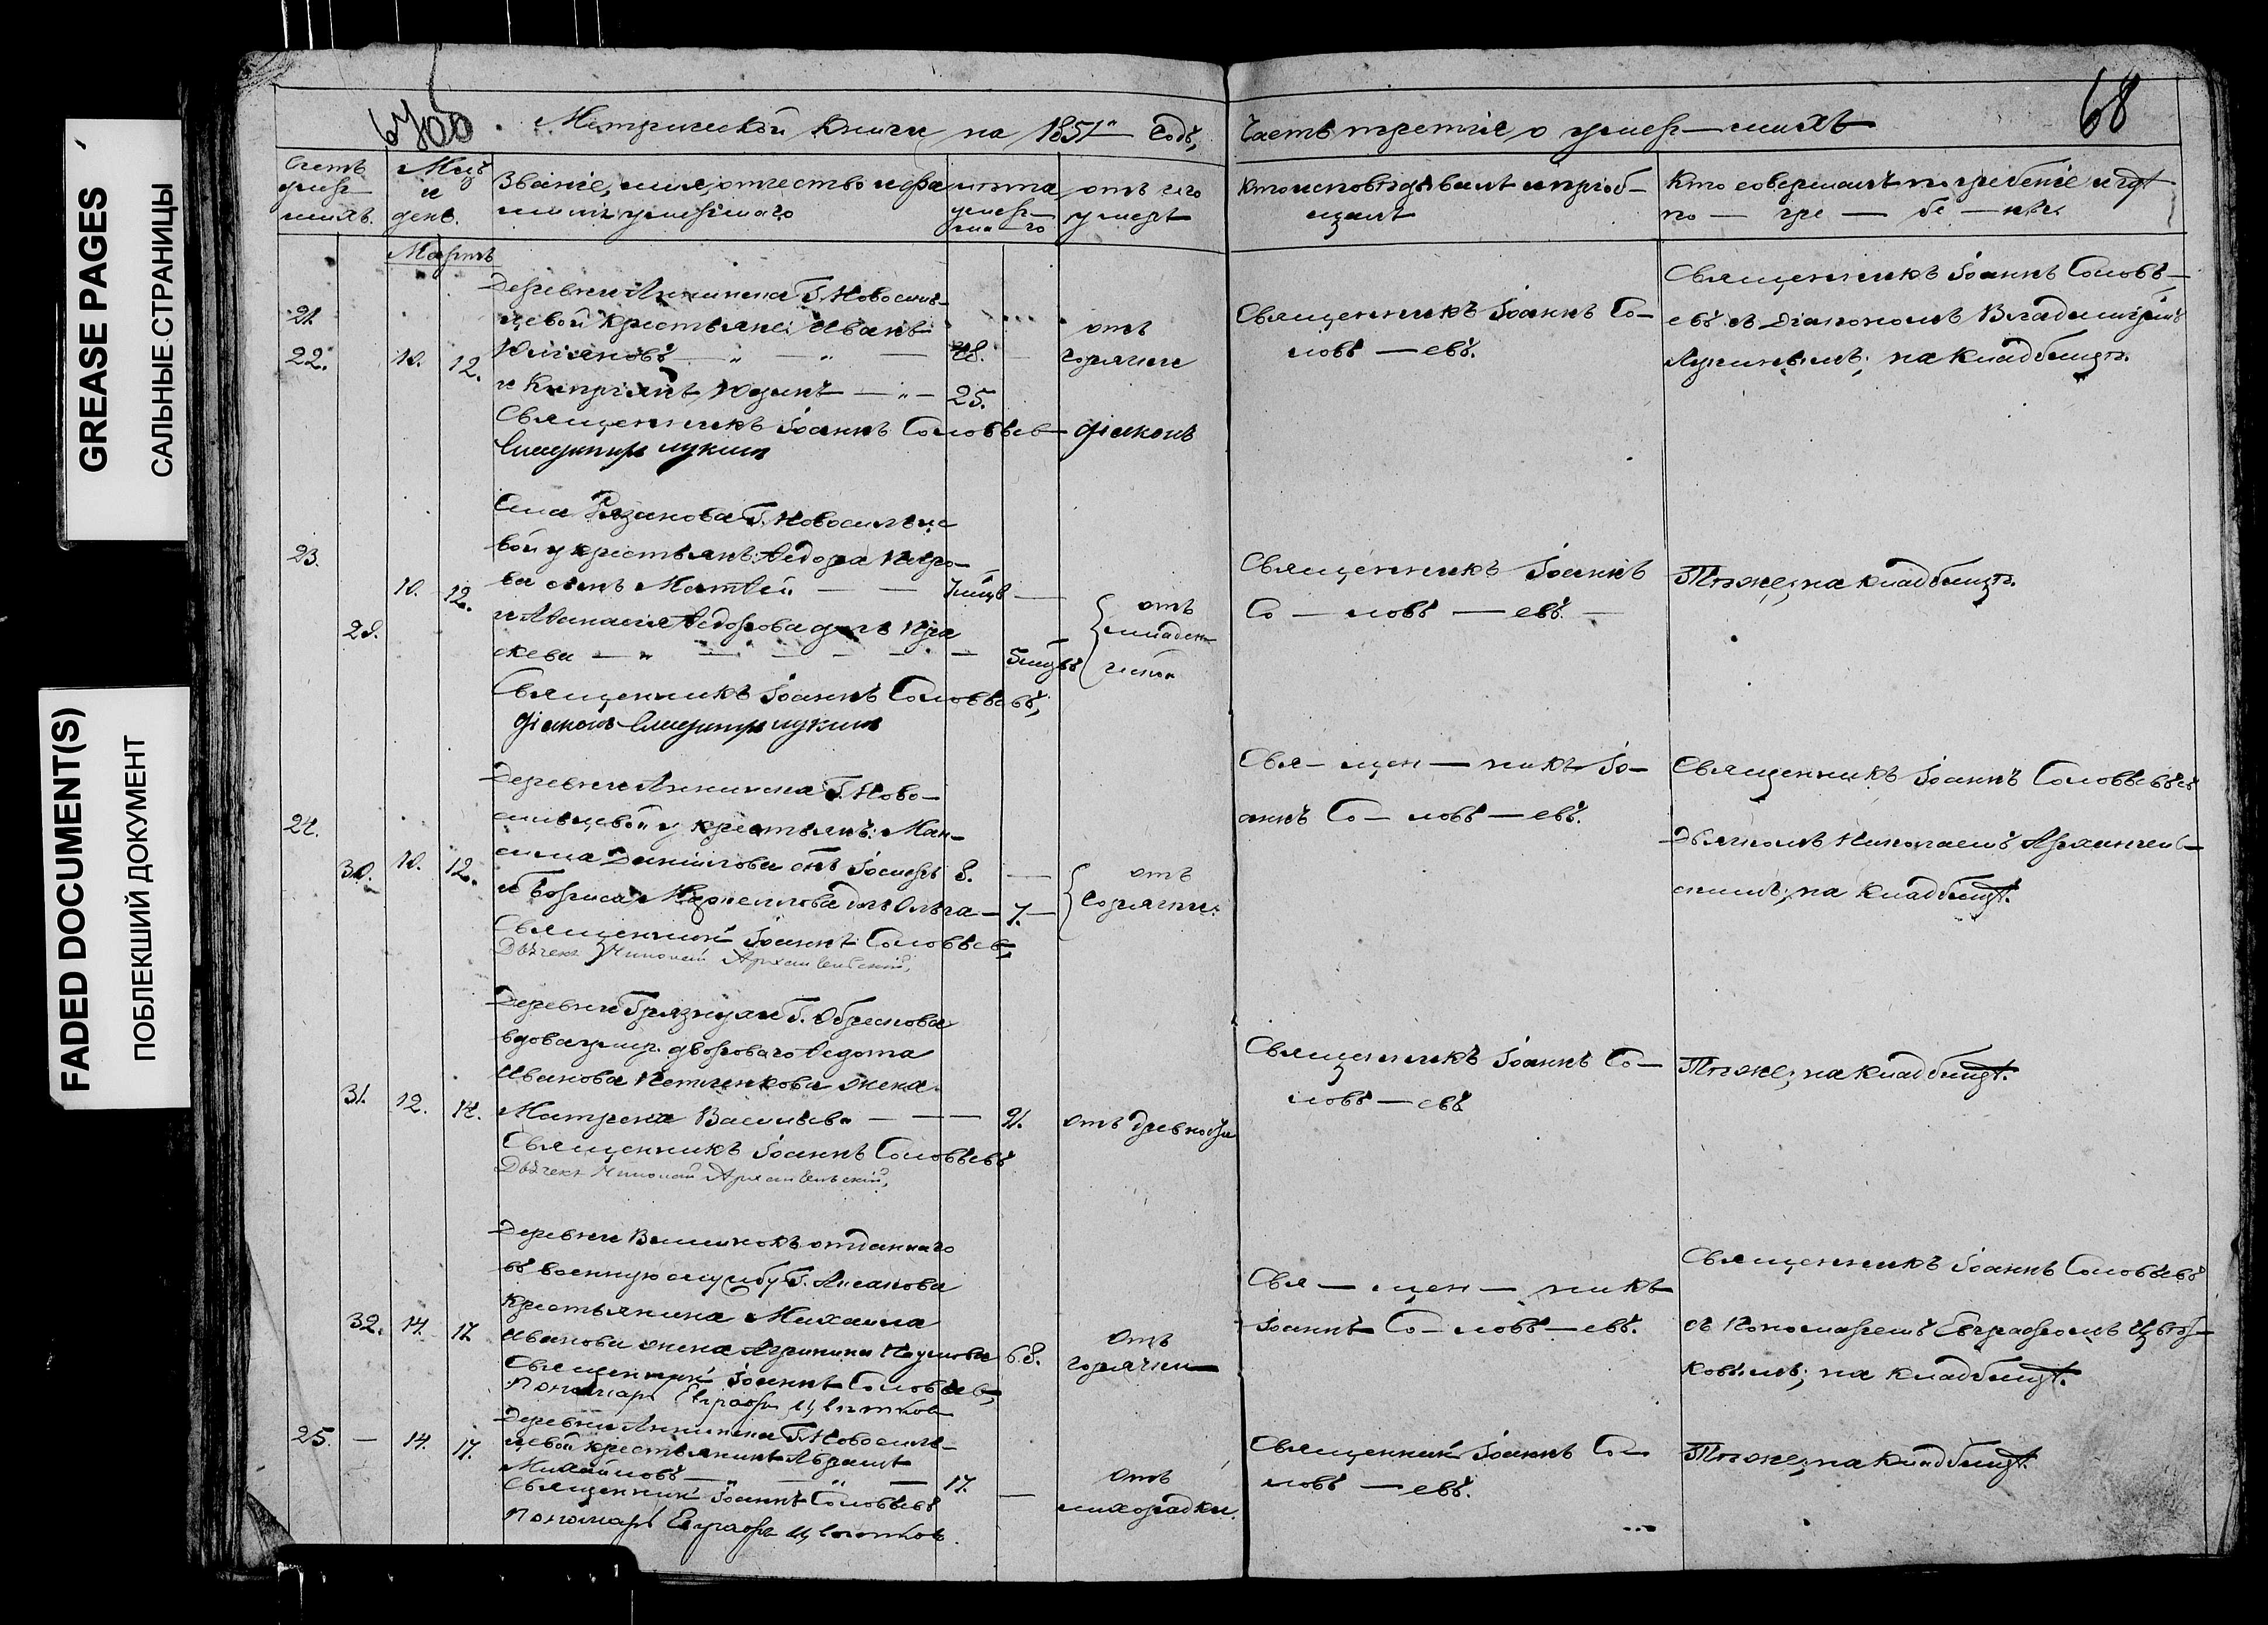 GREASE PAGES
САЛЬНЫЕ СТРАНИЦЫ
FADED DOCUMENT(S)
ПОБЛЕКШИЙ ДОКУМЕНТ
Метрической книги на 1851й Годъ,
Часть третiя о умер—шихъ
68
Счетъ умер—шихъ.
Мцъ и день.
Званiе, имя, отчество и фамилiя умершаго
лѣта умер—шаго
отъ чего умеръ
Кто исповѣдывалъ и прiоб—
щалъ
Кто совершалъ погребенiе и гдѣ
по — гре — бе — ны
Мартъ
21.
22.
10. 12.
Деревни Аннина Г. Новосиль—
цевой крестьяне Иванъ
и Кипрiянъ Юдинъ — „ — 25.
Священникъ Iоаннъ Соловьев дiаконъ
Владимиръ Лукинъ
отъ
горячки
Священникъ Iоаннъ Со—
ловь — евъ.
Священникъ Iоаннъ Соловь—
евъ съ Дiакономъ Владимiромъ
Лукинымъ; на кладбищѣ.
23.
28.
10. 12.
Села Рязанова Г. Новосильце
вой у крестьянъ: Ѳедора Петро—
ва сынъ Матвей
и Аѳанасiя Ѳедорова дочь Пра
скева
5 мцовъ
Священникъ Iоаннъ Соловьевъ,
дiаконъ Владимиръ Лукинъ
отъ
младен—
ческой
Священникъ Iоаннъ
Со — ловь — евъ.
Тѣже; на кладбищѣ.
24.
30. 10. 12.
Деревни Аннина Г. Ново—
сильцевой у крестьянъ: Мак—
сима Данiилова сынъ Iосифъ 8.
и Бориса дочь Ольга — 7.
Священникъ Iоаннъ Соловьев,
Дьячекъ Николай Архангельскiй,
отъ
Горячки.
Свя— щен — никъ Iо—
аннъ Со — ловь — евъ.
Священникъ Iоаннъ Соловьевъ съ
Дьячкомъ Николаемъ Архангель—
скимъ; на кладбищѣ.
31. 12. 14.
Деревни Грязнухи Г. Обрескова
вдова умер. двороваго Ѳедота
Иванова жена
Матрена Васильева
91.
Священникъ Iоаннъ Соловьевъ
Дьячекъ Николай Архангельскiй,
отъ древности
Священникъ Iоаннъ Со—
ловь — евъ
Тѣже; на кладбищѣ.
32. 14. 17
Деревни отданнаго
въ военную службу Г.
Крестьянина Михаила
Иванова жена Агрипина Наумова 68.
Священникъ Iоаннъ Соловьев,
Пономарь Евграфъ Цветков
отъ
горячки
Свя — щен — никъ
Iоаннъ Со — ловь — евъ.
Священникъ Iоаннъ Соловьевъ
съ Пономаремъ Евграфомъ Цвѣт—
ковымъ; на кладбищѣ.
25. — 14. 17.
Деревни Аннина Г. Новосиль—
цевой крестьянинъ Абрамъ
Михайловъ — 17.
Священникъ Iоаннъ Соловьевъ
Пономарь Евграфъ Цветков.
отъ
лихорадки.
Священникъ Iоаннъ Со—
ловь — евъ.
Тѣже; на кладбищѣ.